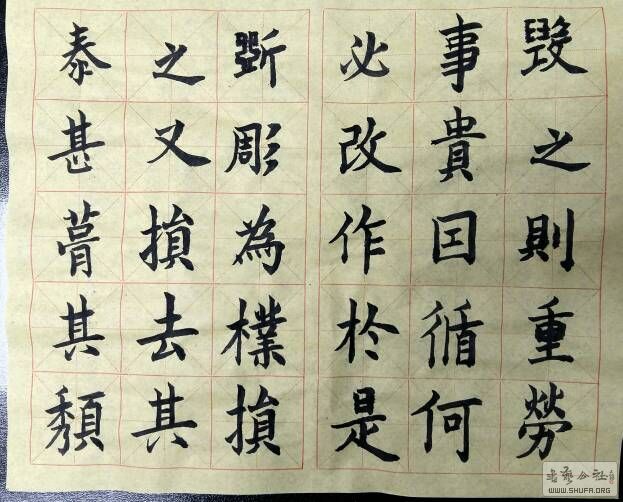 毀之則重勞
事貴囙循何
必改作於是
斲彫為樸損
之又損去其
泰甚葺其頹
WWW.SHUFA.ORG